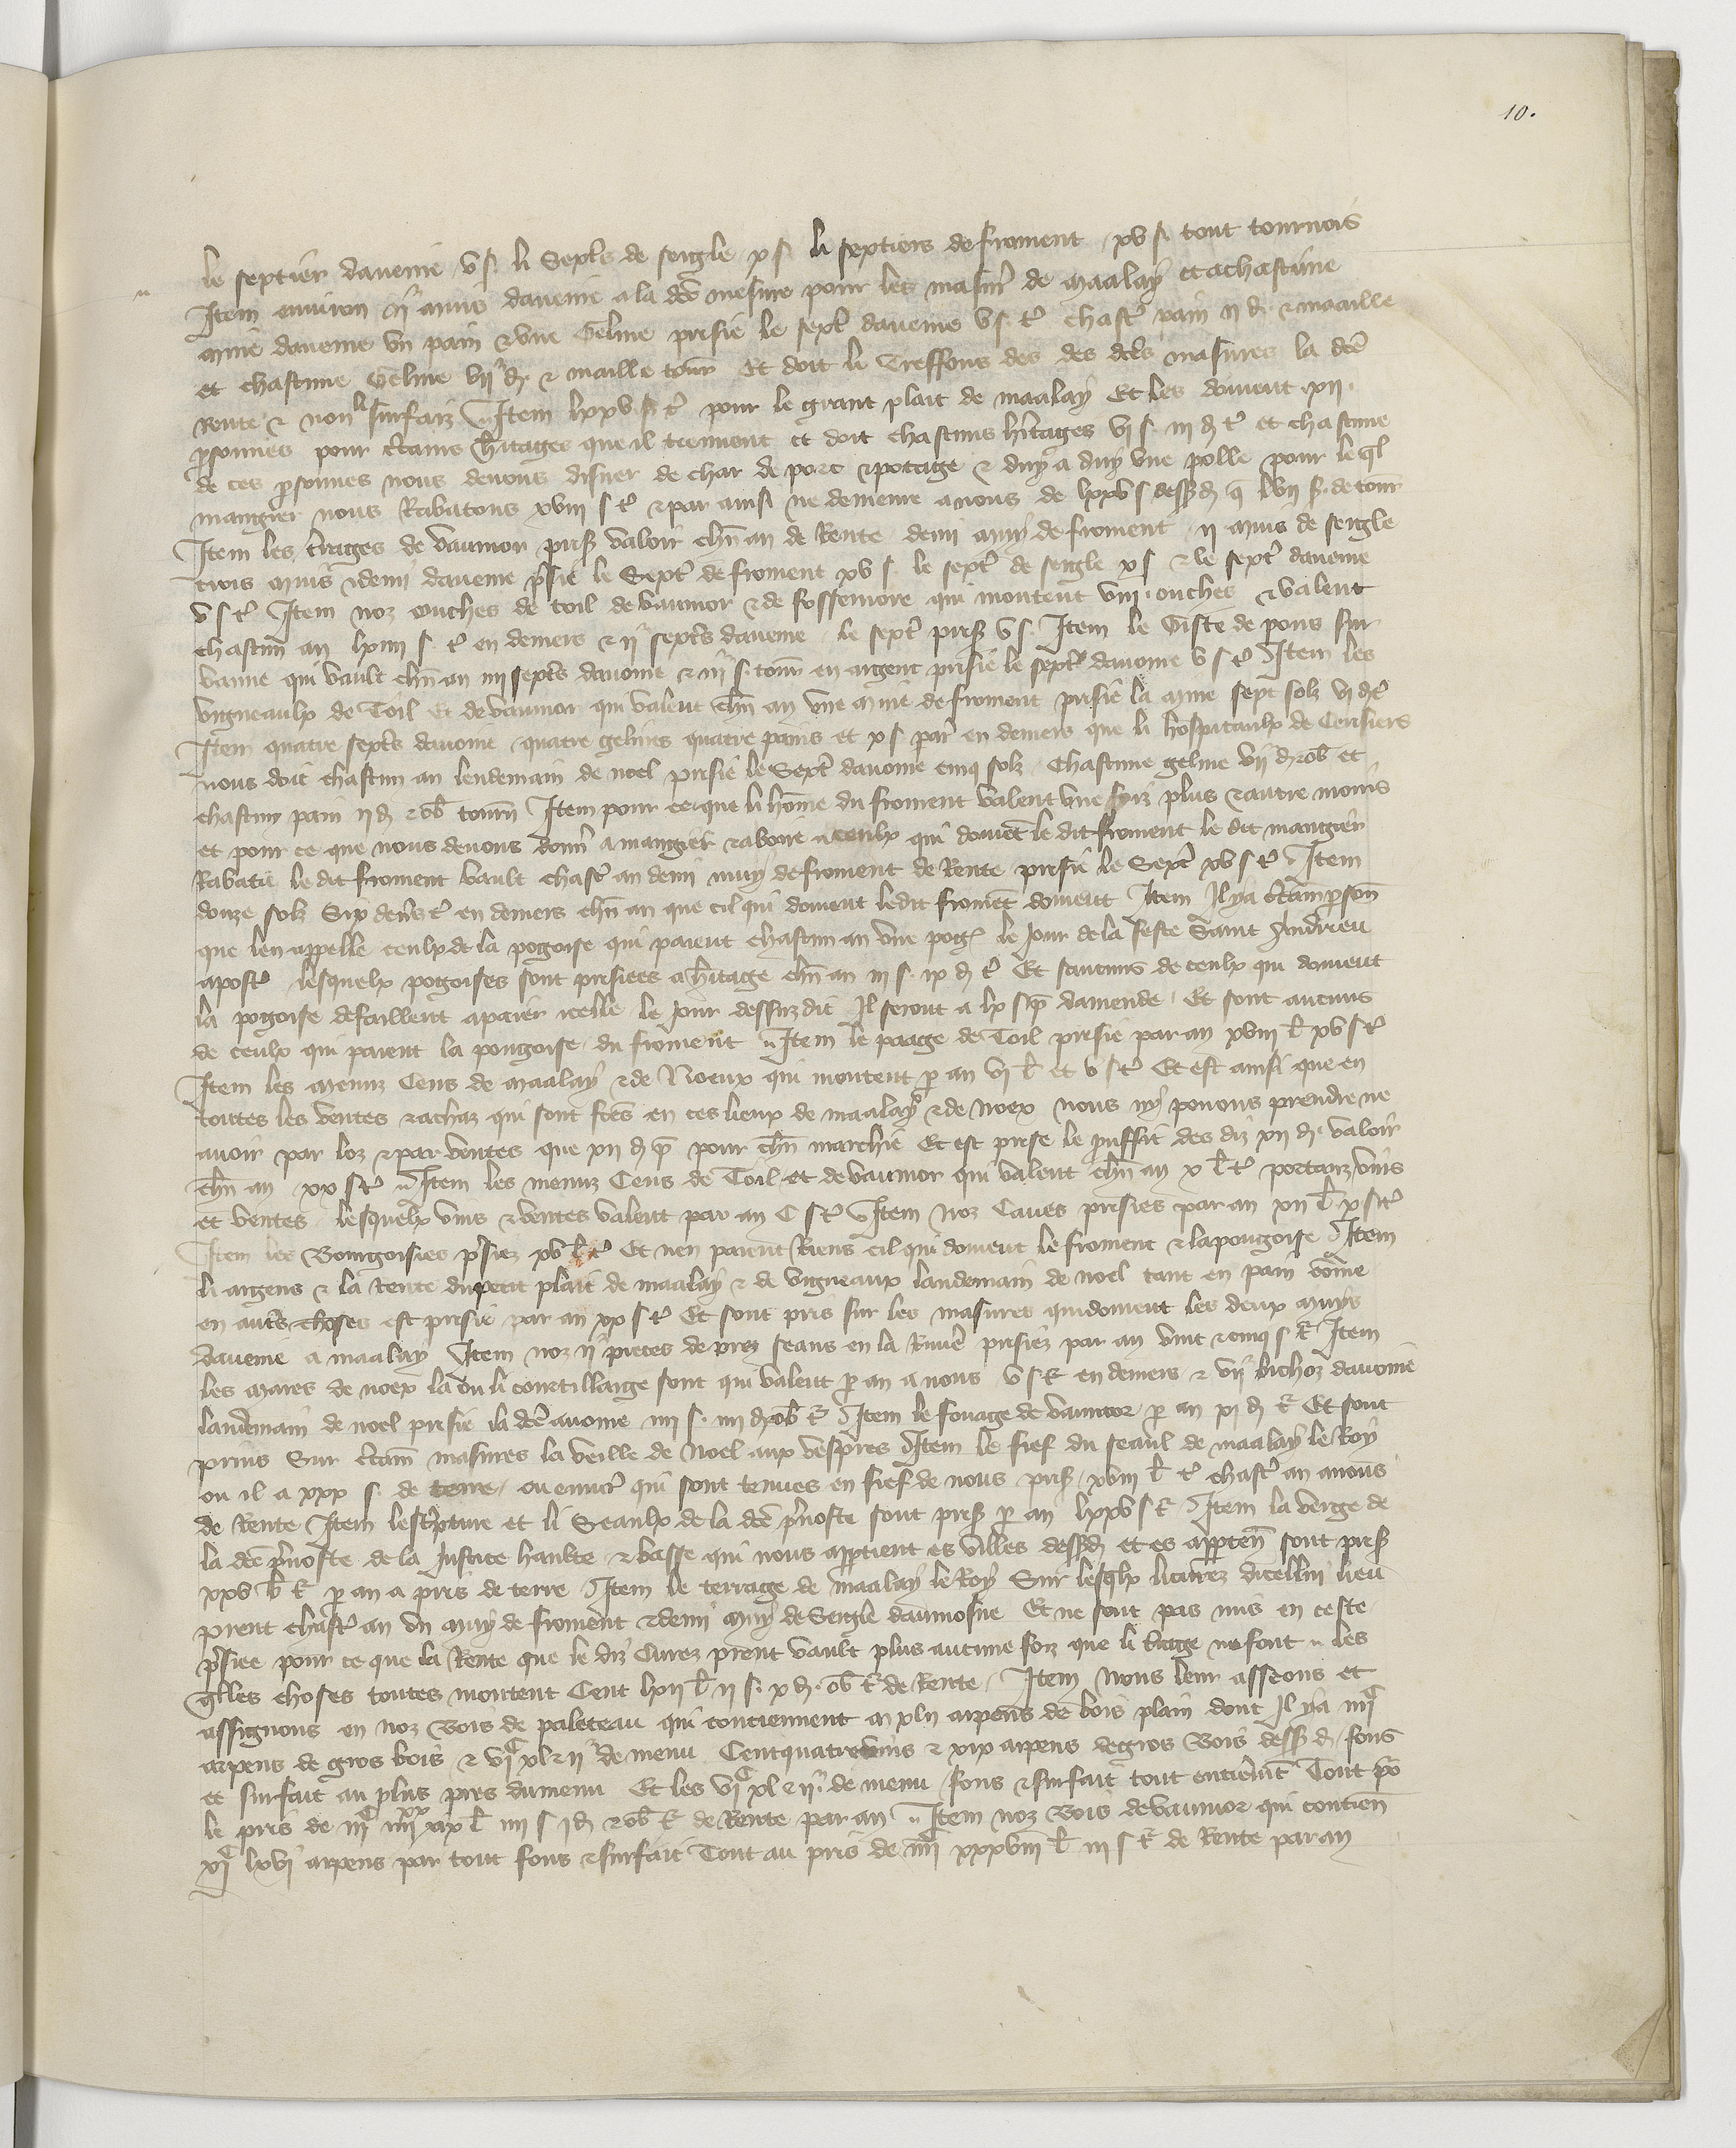 10.
le septier daveine v s. li Septs de seigle x s. li septiers de froment xv s. tout tournois
Item environ ii muis daveine a la dce mesure pour les masurs de maalay et a chascune
mine daveine un pain & une Geline prisie le sextr daveine v s. t. chascr pain ii d. & maaille
et chascune Geline vii d. & maille tour Et doit li Treffons des des dces masures la dce
Rente & non li surfaiz Item lxxv s. t. pour le grant plait de maalay Et les doivent xii.
psonnes pour ctains hitages que il tiennent et doit chascuns hitages vi s. iii d. t. et chascune
de ces psonnes nous devons disner de char de porc & potage & duy a duy une polle pour le ql
mangier nous Rabatons xviii s. t. & par ainsi ne demeure a nous de lxxv s dessd q lvii s. de tour
Item les trages de vaumor pris valoir chn an de Rente demi muy de froment ii muis de seigle
trois muis & demi daveine prisie le Septr de froment xv s. le septr de seigle x s & le septr daveine
v s t. Item noz ouches de toil de vaumor & de fossemore qui montent viii. ouches & valent
chascun an lxiiii s. t. en deniers & ii septrs daveine le septr pris v s. Item le Giste de pons sur
vanne qui vault chn an iiii septs davoine & iii s. tour en argent prisie le septr davoine v s t. Item les
vigneaulx de Toil Et de vaumor qui valent chn an une mine de froment prisie la mine sept solz vi d t.
Item quatre septs davoine quatre gelines quatre pains et x s par en deniers que li hospitaulx de Cerisiers
nous doit chascun an lendemain de noel prisie le Septr davoine cinq solz Chascune geline vii d & ob et
chascun pain ii d & ob tourn Item pour ce que li home du froment valent une foiz plus & autre moins
et pour ce que nous devons donr a mangier & a boire a ceulx qui doivet le dit froment le dit mangier
Rabatu le dit froment vault chascr an demi muy de froment de Rente prisie le Septr xv s t. Item
douze solz Six denrs t. en deniers chn an que cil qui doivent ledit fromet doivent Item Il y a ctain pson
que len appelle ceulx de la pogoise qui paient chascun an une pog le Jour de la feste Saint Andrieu
apostr lesquelx pogoises sont prisiees a hitage chn an iii s. ix d t. Et saucuns de ceulx qui doivent
la pogoise defaillent a paier icelle le Jour dessuzdit Il seront a lx s p damende Et sont aucuns
de ceulx qui paient la pougoise du froment Item le paage de Toil prisie par an xviii l xv s t.
Item les menuz Cens de maalay & de Noeux qui montent p an vi l et v s t. Et est ainsi que en
toutes les ventes & achaz qui sont fces en ces lieux de maalay & de noex nous ny povons prendre ne
avoir par loz & par ventes que xii d p pour chn marchie Et est prise le pruffit des diz xii d. valoir
chn an xx s t. Item les menuz Cens de Toil et de vaumor qui valent chn an x l t. portanz vins
et ventes lesquelx vins & ventes valent par an C s t. Item noz Caves prisies par an xii l x s t.
Item les Bourgoisies prisiez xv l t. Et nen paient Riens cil qui doivent le froment & la pougoise Item
li argens & la Rente du petit plait de maalay & de vigneaux landemain de noel tant en pain come
en auts choses est prisie par an xx s t. Et sont pris sur les masures qui doivent les deux muys
daveine a maalay Item noz ii pieces de prez seans en la Riviere prisiez par an vint & cinq s t. Item
les mares de noex la ou li courtillaige sont qui valent p an a nous v s t. en deniers & vii bichoz davoine
landemain de noel prisie la dce avoine iiii s. iiii d & ob t. Item le fouage de vaumor p an xi d t. Et sont
prins Sur ctain masures la veille de Noel aux vespres Item le fief du seaul de maalay le Roy
ou il a xxx s. de terre ou envir qui sont tenues en fief de nous pris xviii l t. chascr an a nous
de Rente Item lescripture et li Seaulx de la dce prvoste sont pris p an lxxv s t. Item la verge de
la dce prvoste de la Justice haulte & basse qui nous appartient es villes dessd et es appten sont pris
xxv l t. p an a pris de terre Item le terrage de maalay le Roy Sur lesqlx li curez dicellui lieu
prent chascr an un muy de froment & demi muy de Seigle daumosne Et ne sont pas mis en ceste
prisiee pour ce que la Rente que le diz Curez prent vault plus aucune foiz que li trage ne font les
qlles choses toutes montent Cent lxii l ii s. x d. ob t. de Rente Item Nous leur asseons et
assignons en noz Bois de paleteau qui contiennent m xlii arpens de bois plain dont Il y a iiii C
arpens de gros bois & vi C xl & ii de menu Cent quatrevins & xix arpens de gros Bois dessd fons
et surfait au plus pres du menu Et les vi C xl & ii. de menu fons & surfait tout entiermt Tout po
le pris de iii C iiii xx xix l iiii s i d & ob t. de Rente par an Item noz Bois de vaumor qui contien
xi C lxvi arpens par tout fons & surfait Tout au pris de iiii C xxxviii l iii s t. de Rente par an